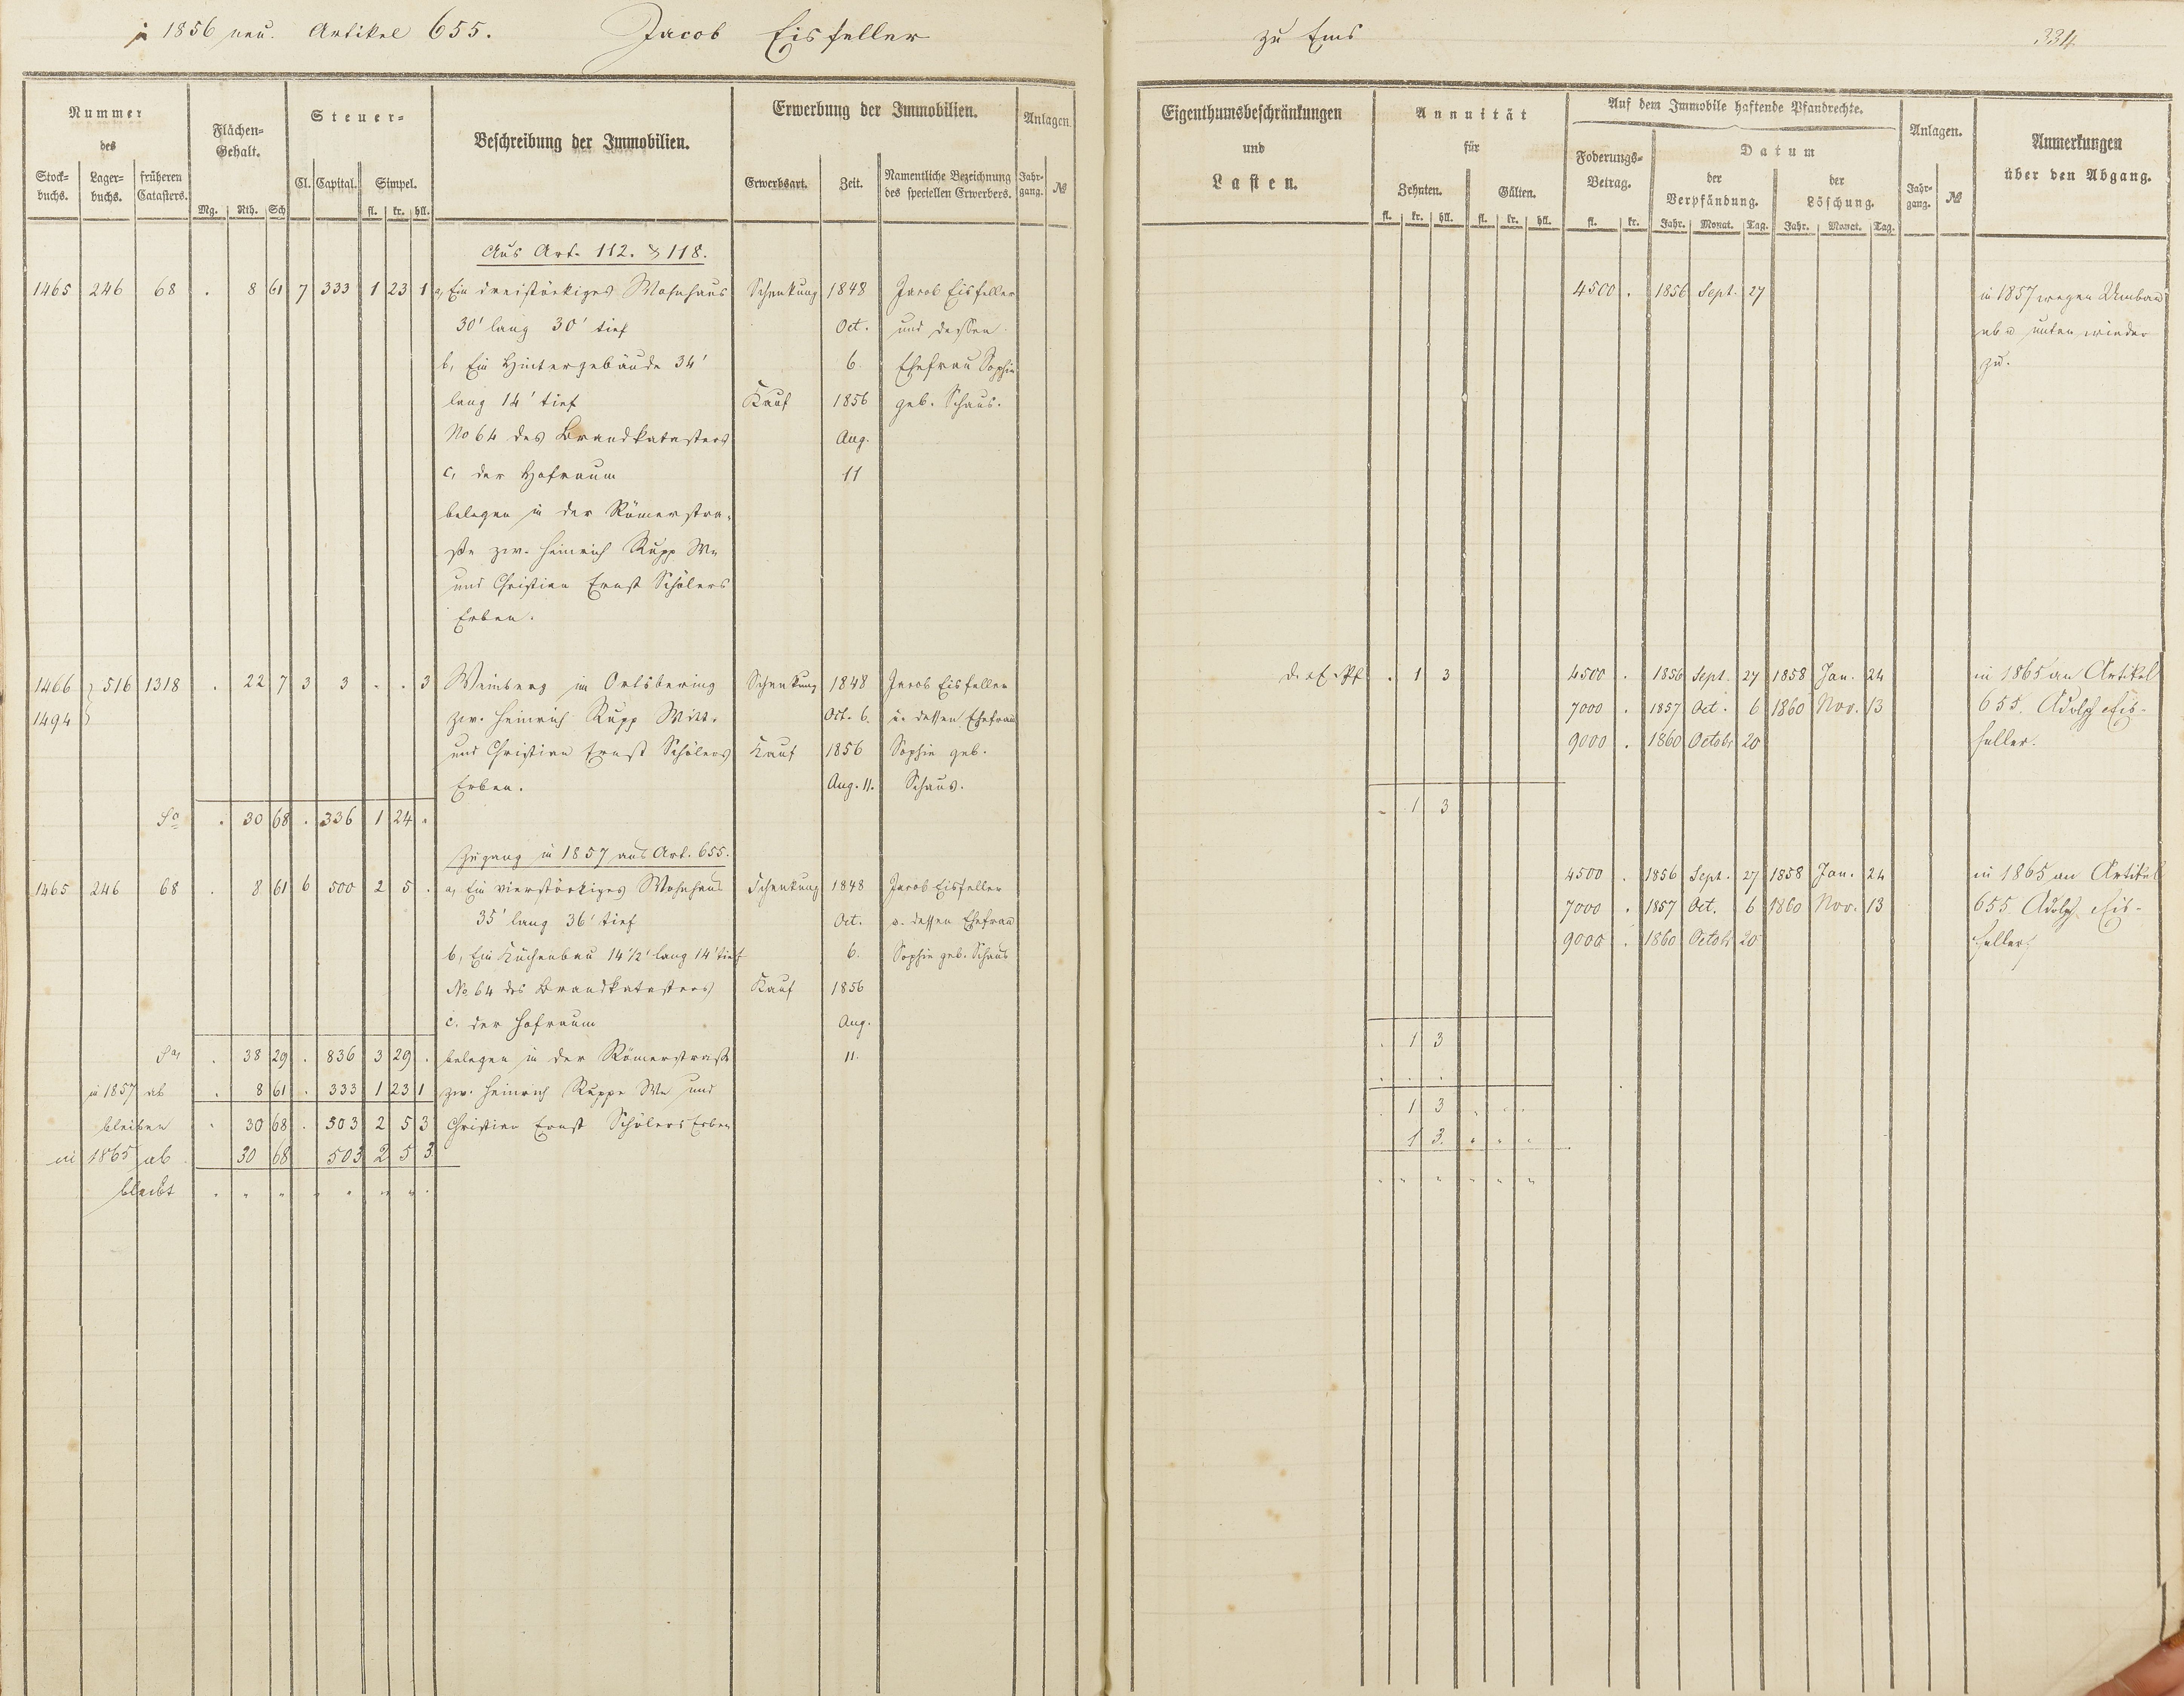 in 1856 neu. Artikel 655. Jacob Eisfeller zu Ems 334
Nummer des
Stock-buchs. Lager-buchs. früheren Catasters.
Flächen-Gehalt.
Mg. Rth. Sch
Steuer-
Cl. Capital. Simpel.
fl. kr. hll.
Beschreibung der Immobilien.
Erwerbung der Immobilien.
Erwerbsart. Zeit. Namentliche Bezeichnung des speciellen Erwerbers.
Anlagen.
Jahr-gang. №
Eigenthumsbeschränkungen
und
Lasten.
Annuität
für
Zehnten. Gülten.
fl. kr. hll. fl. kr. hll.
Auf dem Immobile haftende Pfandrechte.
Foderungs-Betrag.
fl. kr.
Datum
der Verpfändung. der Löschung.
Jahr. Monat. Tag. Jahr. Monat. Tag.
Anlagen.
Jahr-gang. №
Anmerkungen
über den Abgang.
Aus Art. 112. & 118.
1465 246 68 . 8 61 7 333 1 23 1 a, Ein dreistöckiges Wohnhaus Schenkung 1848 Jacob Eisfeller 4500 . 1856 Sept. 27 in 1857 wegen Umbau
30' lang 30' tief Oct. und dessen ab u unten wieder
b, Ein Hintergebäude 34' 6 Ehefrau Sophie zu.
lang 14' tief Kauf 1856 geb. Schaus.
No 64 des Brandkatasters Aug.
c, der Hofraum 11
belegen in der Römerstra-
ße zw. Heinrich Rupp We
und Christian Ernst Schölers
Erben.
1466 } 516 1318 . 22 7 3 3 . . 3 Weinberg im Ortsbering Schenkung 1848 Jacob Eisfeller . 1 3 4500 . 1856 Sept. 27 1858 Jan. 24 in 1865 an Artikel
1494 zw. Heinrich Rupp Witt. Oct. 6. u. dessen Ehefrau 7000 . 1857 Oct. 6 1860 Nov. 13 655. Adolph Eis-
und Christian Ernst Schölers Kauf 1856 Sophie geb. 9000 . 1860 Octobr 20 feller.
Erben. Aug. 11. Schaus.
Sa . 30 68 . 336 1 24 . . 1 3
Zugang in 1857 aus Art. 655.
1465 246 68 . 8 61 6 500 2 5 . a, Ein vierstöckiges Wohnhaus Schenkung 1848 Jacob Eisfeller 4500 . 1856 Sept. 27 1858 Jan. 24 in 1865 an Artikel
35' lang 36' tief Oct. u. dessen Ehefrau 7000 . 1857 Oct. 6 1860 Nov. 13 655 Adolph Eis-
b, Ein Küchenbau 14½' lang 14' tief 6. Sophie geb. Schaus 9000 . 1860 Octobr 20 feller.
No 64 des Brandkatasters Kauf 1856
c. der Hofraum Aug.
Sa . 38 29 . 836 3 29 . belegen in der Römerstraße 11. . 1 3
in 1857 ab . 8 61 . 333 1 23 1 zw. Heinrich Rupps We und . . .
bleiben . 30 68 . 503 2 5 3 Christian Ernst Schölers Erben . 1 3 . . .
in 1865 ab 30 68 503 2 5 3 1 3. " " "
bleibt . " " " " " " . " " " " " "